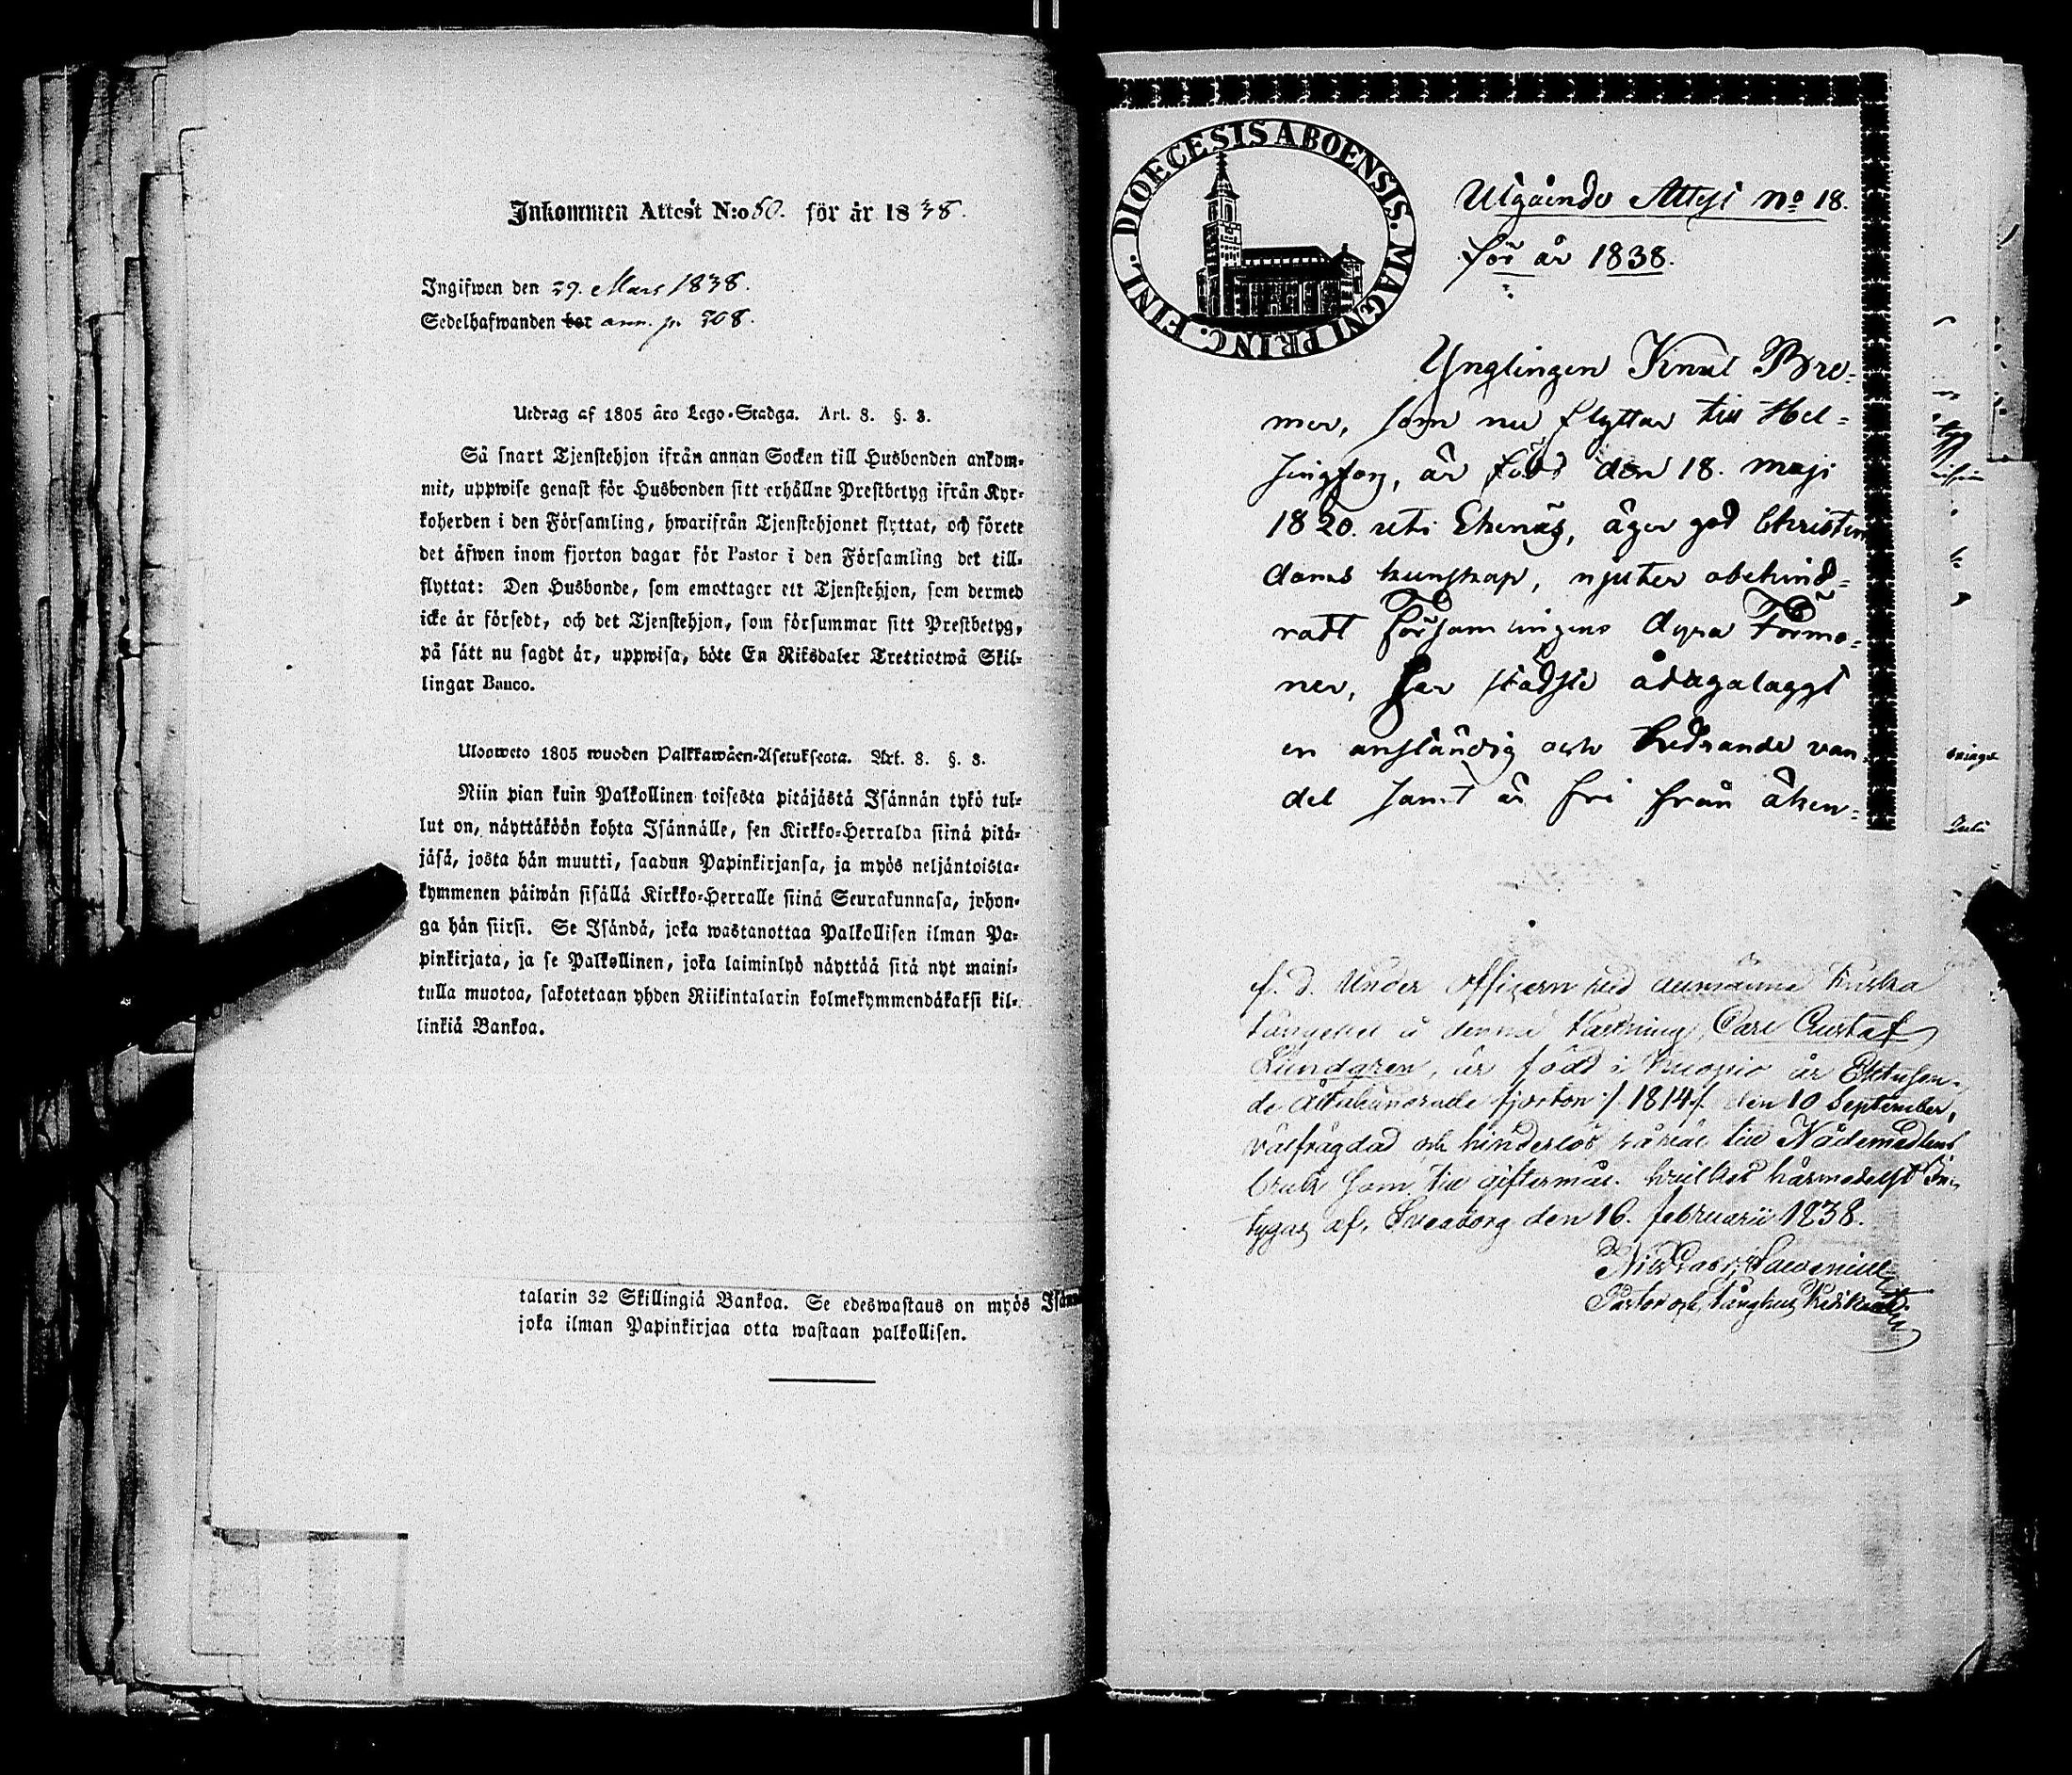 Inkommen Attest N:o 80. för år 1838.
Ingifwen den 29. Mars 1838.
Sedelhafwanden bor ann. p. 708.
Utdrag af 1805 års Lego-Stadga. Art. 8. §. 3.
Så snart Tjenstehjon ifrån annan Socken till Husbonden ankom-
mit, uppwise genast för Husbonden sitt erhållne Prestbetyg ifrån Kyr-
koherden i den Församling, hwarifrån Tjenstehjonet flyttat, och förete
det äfwen inom fjorton dagar för Pastor i den Församling det till-
flyttat: Den Husbonde, som emottager ett Tjenstehjon, som dermed
icke är försedt, och det Tjenstehjon, som försummar sitt Prestbetyg,
på sätt nu sagdt är, uppwisa, böte En Riksdaler Trettiotwå Skil-
lingar Banco.
Ulosweto 1805 wuoden Palkkawäen-Asetuksesta. Art. 8. §. 3.
Niin pian kuin Palkollinen toisesta pitäjästä Isännän tykö tul-
lut on, näyttäköön kohta Isännälle, sen Kirkko-Herralda siinä pitä-
jäsä, josta hän muutti, saadun Papinkirjansa, ja myös neljäntoista-
kymmenen päiwän sisällä Kirkko-Herralle siinä Seurakunnasa, johon-
ga hän siirsi. Se Isändä, joka wastanottaa Palkollisen ilman Pa-
pinkirjata, ja se Palkollinen, joka laiminlyö näyttää sitä nyt maini-
tulla muotoa, sakotetaan yhden Riikintalarin kolmekymmendäkaksi kil-
linkiä Bankoa.
talarin 32 Skillingiä Bankoa. Se edeswastaus on myös Isänn
joka ilman Papinkirjaa otta wastaan palkollisen.
DIOECESIS ABOENSIS. MAGNI PRINC. FINL.
Utgående Attest No 18.
för år 1838.
Ynglingen Knut Bre-
mer, som nu flyttar till Hel-
singfors, är född den 18. maji
1820. uti Ekenäs, äger god Christen
doms kunskap, njuter obehind-
radt Församlingens dyra Förmo-
ner, har städse ådagalaggt
en anständig och hedrande van-
del samt är fri från äkten-
f. d. Under Officern vid
å denna Fästning, Carl Gustaf
Lundgren, är född i Kuopio år Ettusen-
de Åttahundrade fjorton /: 1814 :/ den 10 September,
välfrägdad och hinderlös såväl till Nådemedlens
bruk som till giftermål. hvilket härmedelst In-
tygas af, Sveaborg den 16. februarii 1838.
Pastor och